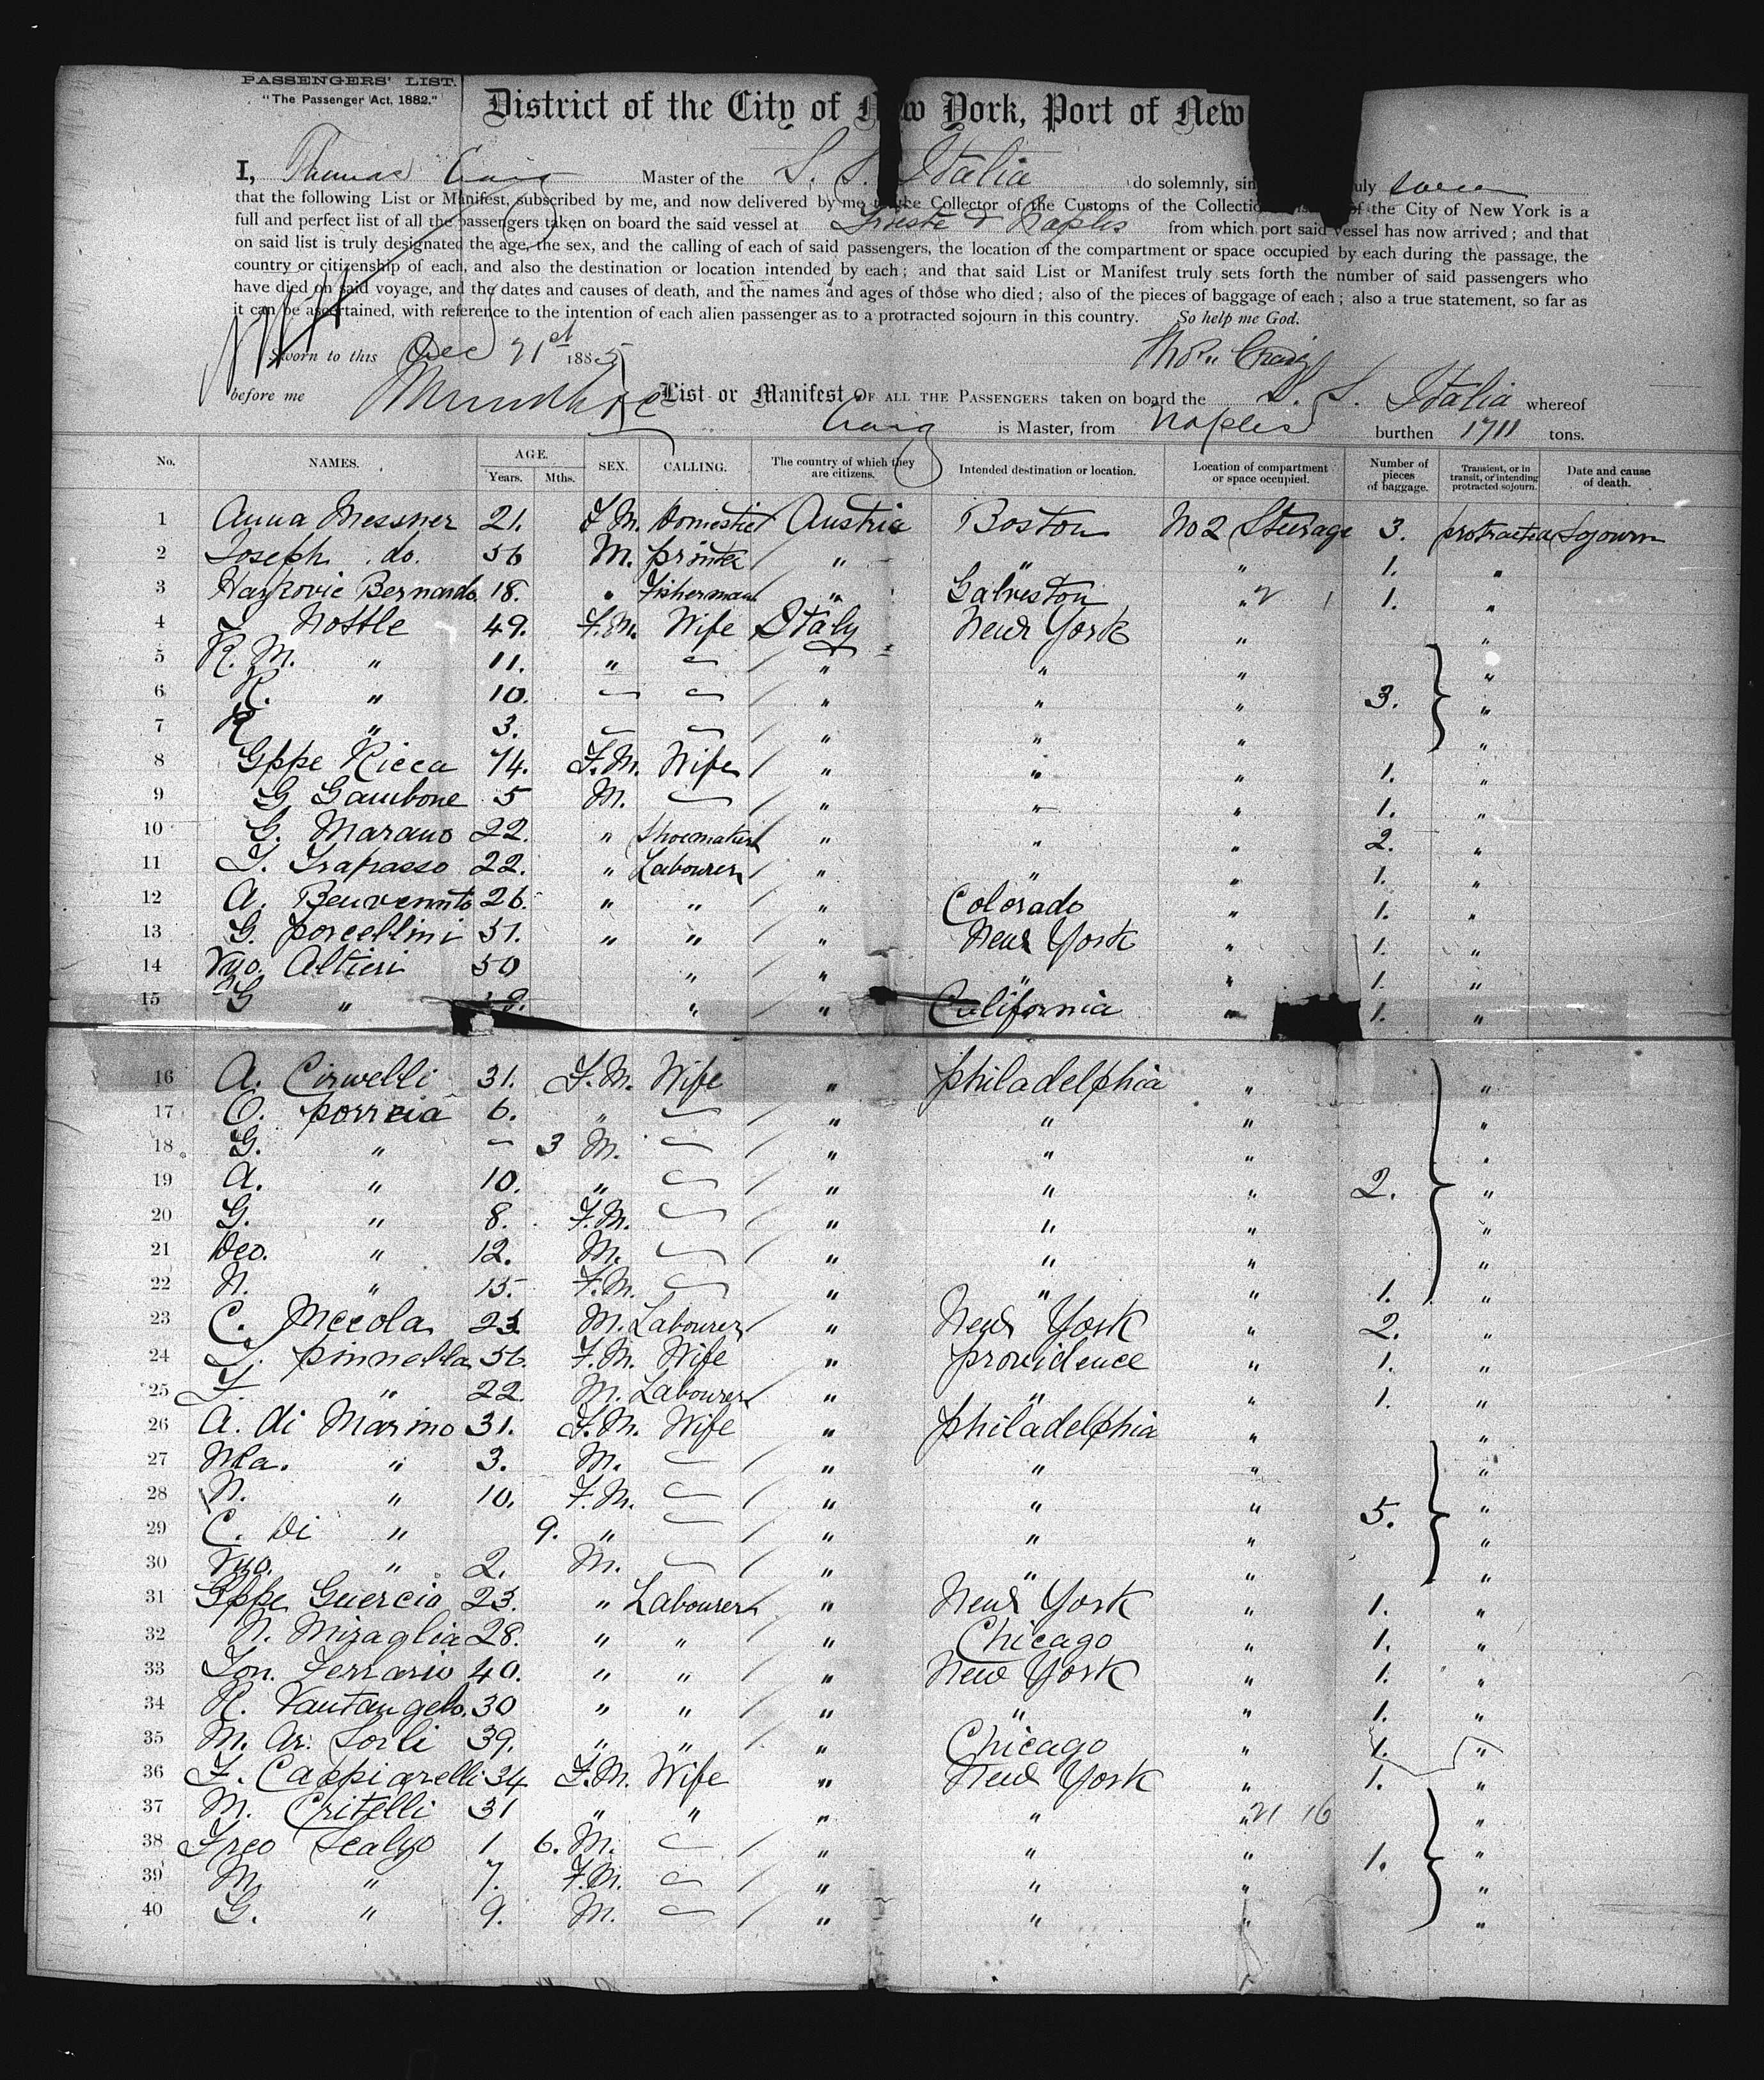 PASSENGERS' LIST.
"The Passenger Act, 1882."
District of the City of New York, Port of New
I, Thomas Craig Master of the S. S. Italia do solemnly, sin uly
that the following List or Manifest, subscribed by me, and now delivered by me to the Collector of the Customs of the Collection of the City of New York is a
full and perfect list of all the passengers taken on board the said vessel at Trieste & Naples from which port said vessel has now arrived; and that
on said list is truly designated the age, the sex, and the calling of each of said passengers, the location of the compartment or space occupied by each during the passage, the
country or citizenship of each, and also the destination or location intended by each; and that said List or Manifest truly sets forth the number of said passengers who
have died on said voyage, and the dates and causes of death, and the names and ages of those who died; also of the pieces of baggage of each; also a true statement, so far as
it can be ascertained, with reference to the intention of each alien passenger as to a protracted sojourn in this country. So help me God.
Sworn to this Dec 21st 1885 Thos. Craig
before me List or Manifest OF ALL THE PASSENGERS taken on board the S. S. Italia whereof
Craig is Master, from Naples burthen 1711 tons.
No. NAMES. AGE. Years. Mths. SEX. CALLING. The country of which they are citizens. Intended destination or location. Location of compartment or space occupied. Number of pieces of baggage. Transient, or in transit, or intending protracted sojourn. Date and cause of death.
1 Anna Messner 21. F.M. Domestic Austria Boston No 2 Steerage 3. protracted Sojourn
2 Joseph do. 56 M. printer " " " 1. "
3 Bernardo 18. " Fisherman " Galveston " 1. "
4 Nottle 49. F.M. Wife Italy New York " "
5 R. M. " 11. " — " " " "
6 R. " 10. — — " " " 3. "
7 R " 3. — — " " " "
8 Gppe Ricca 74. F.M. Wife " " " 1. "
9 G Gambone 5 M. — " " " 1. "
10 G. Marano 22. " Shoemaker " " " 2. "
11 T. Trapasso 22. " Labourer " " " 1. "
12 A. Benvenuto 26. " " " Colorado " 1. "
13 G. porcellini 51. " " " New York " 1. "
14 Vzo. Altieri 50 " " " " 1. "
15 G " " " California " 1. "
16 A. Cirwelli 31. F.M. Wife " philadelphia " "
17 O. porreia 6. " — " " " "
18 G. " — 3 M. — " " " "
19 A. " 10. " — " " " 2. "
20 G. " 8. F.M. — " " " "
21 Deo. " 12. M. — " " " "
22 N. " 15. F.M. — " " " 1. "
23 C. Meeola 23 M. Labourer " New York " 2. "
24 L. pinnella 56. F.M. Wife " providence " 1. "
25 F. " 22. M. Labourer " " " 1. "
26 A. di Marino 31. F.M. Wife " philadelphia " "
27 Nla. " 3. M. — " " " "
28 N. " 10. F.M. — " " " 5. "
29 C. Di " 9. " — " " " "
30 Vzo. " 2. M. — " " " "
31 Gppe Guercio 23. " Labourer " New York " 1. "
32 N. Miraglia 28. " " " Chicago " 1. "
33 Ton. Ferrario 40. " " " New York " 1. "
34 R. Vautangelo. 30 " " " " " 1. "
35 M. Ar. Sorli 39. " " " Chicago " 1. "
36 F. Cappiarelli 34 F.M. Wife " New York " 1. "
37 M. Critelli 31 " " " " " 16 "
38 Freo Scalzo 1 6. M. — " " " 1. "
39 M. " 7. F.M. — " " " "
40 G. " 9. M. — " " " "